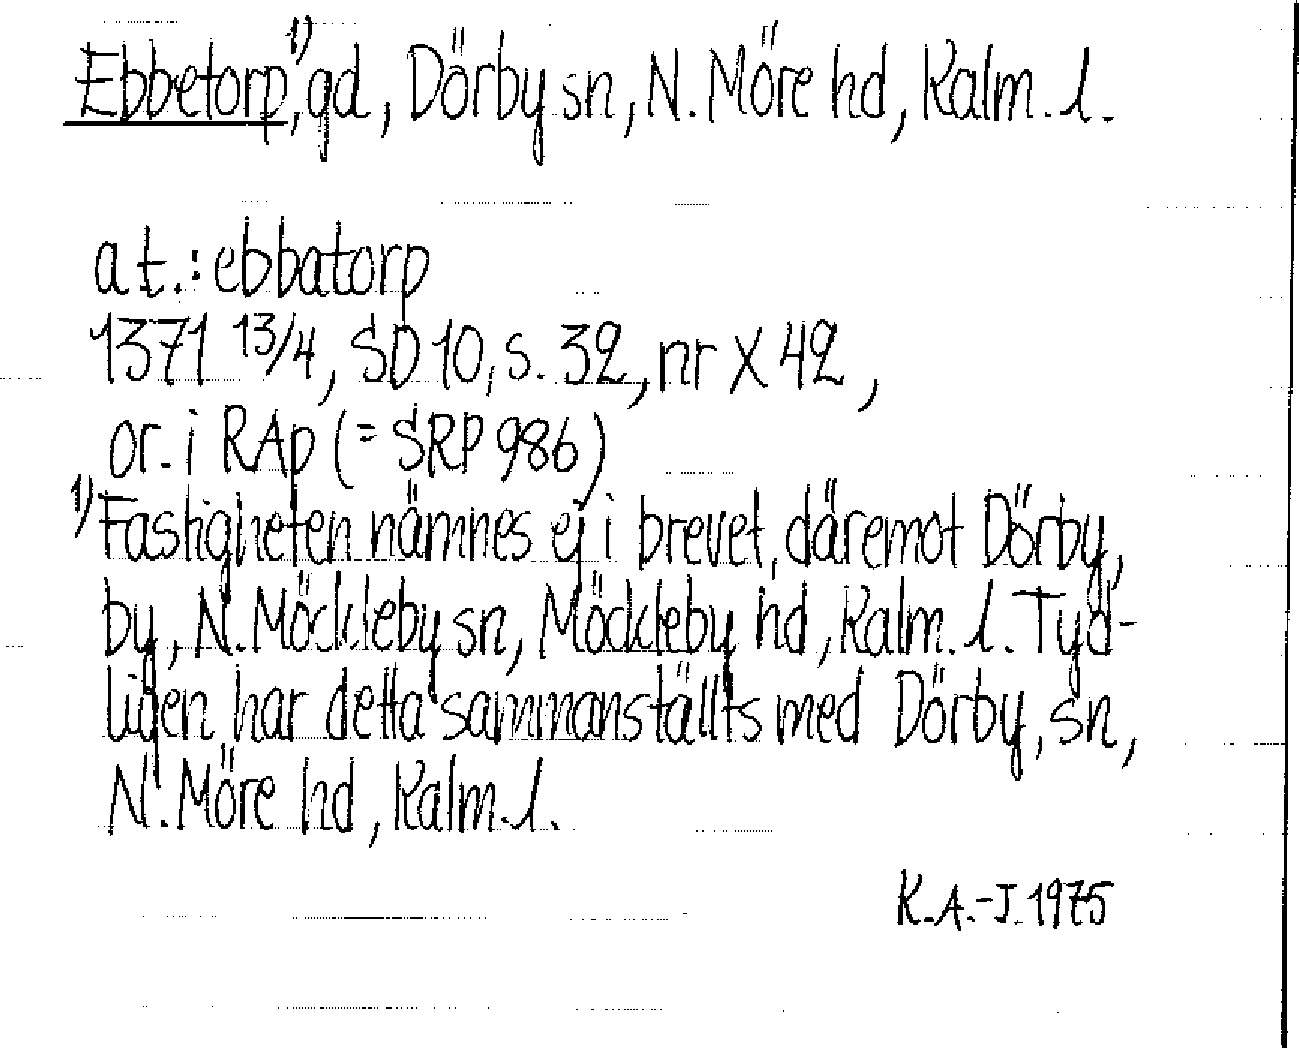 Ebbetorp¹⁾, gd, Dörby sn, N. Möre hd, Kalm. l.
a t.: ebbatorp
1371 13/4, SD 10, s. 32, nr X 42,
or. i RAp (= SRP 986)
¹⁾ Fastigheten nämnes ej i brevet, däremot Dörby,
by, N. Möckleby sn, Möckleby hd, Kalm. l. Tyd-
ligen har detta sammanställts med Dörby, sn,
N. Möre hd, Kalm. l.
K. A.-J. 1975